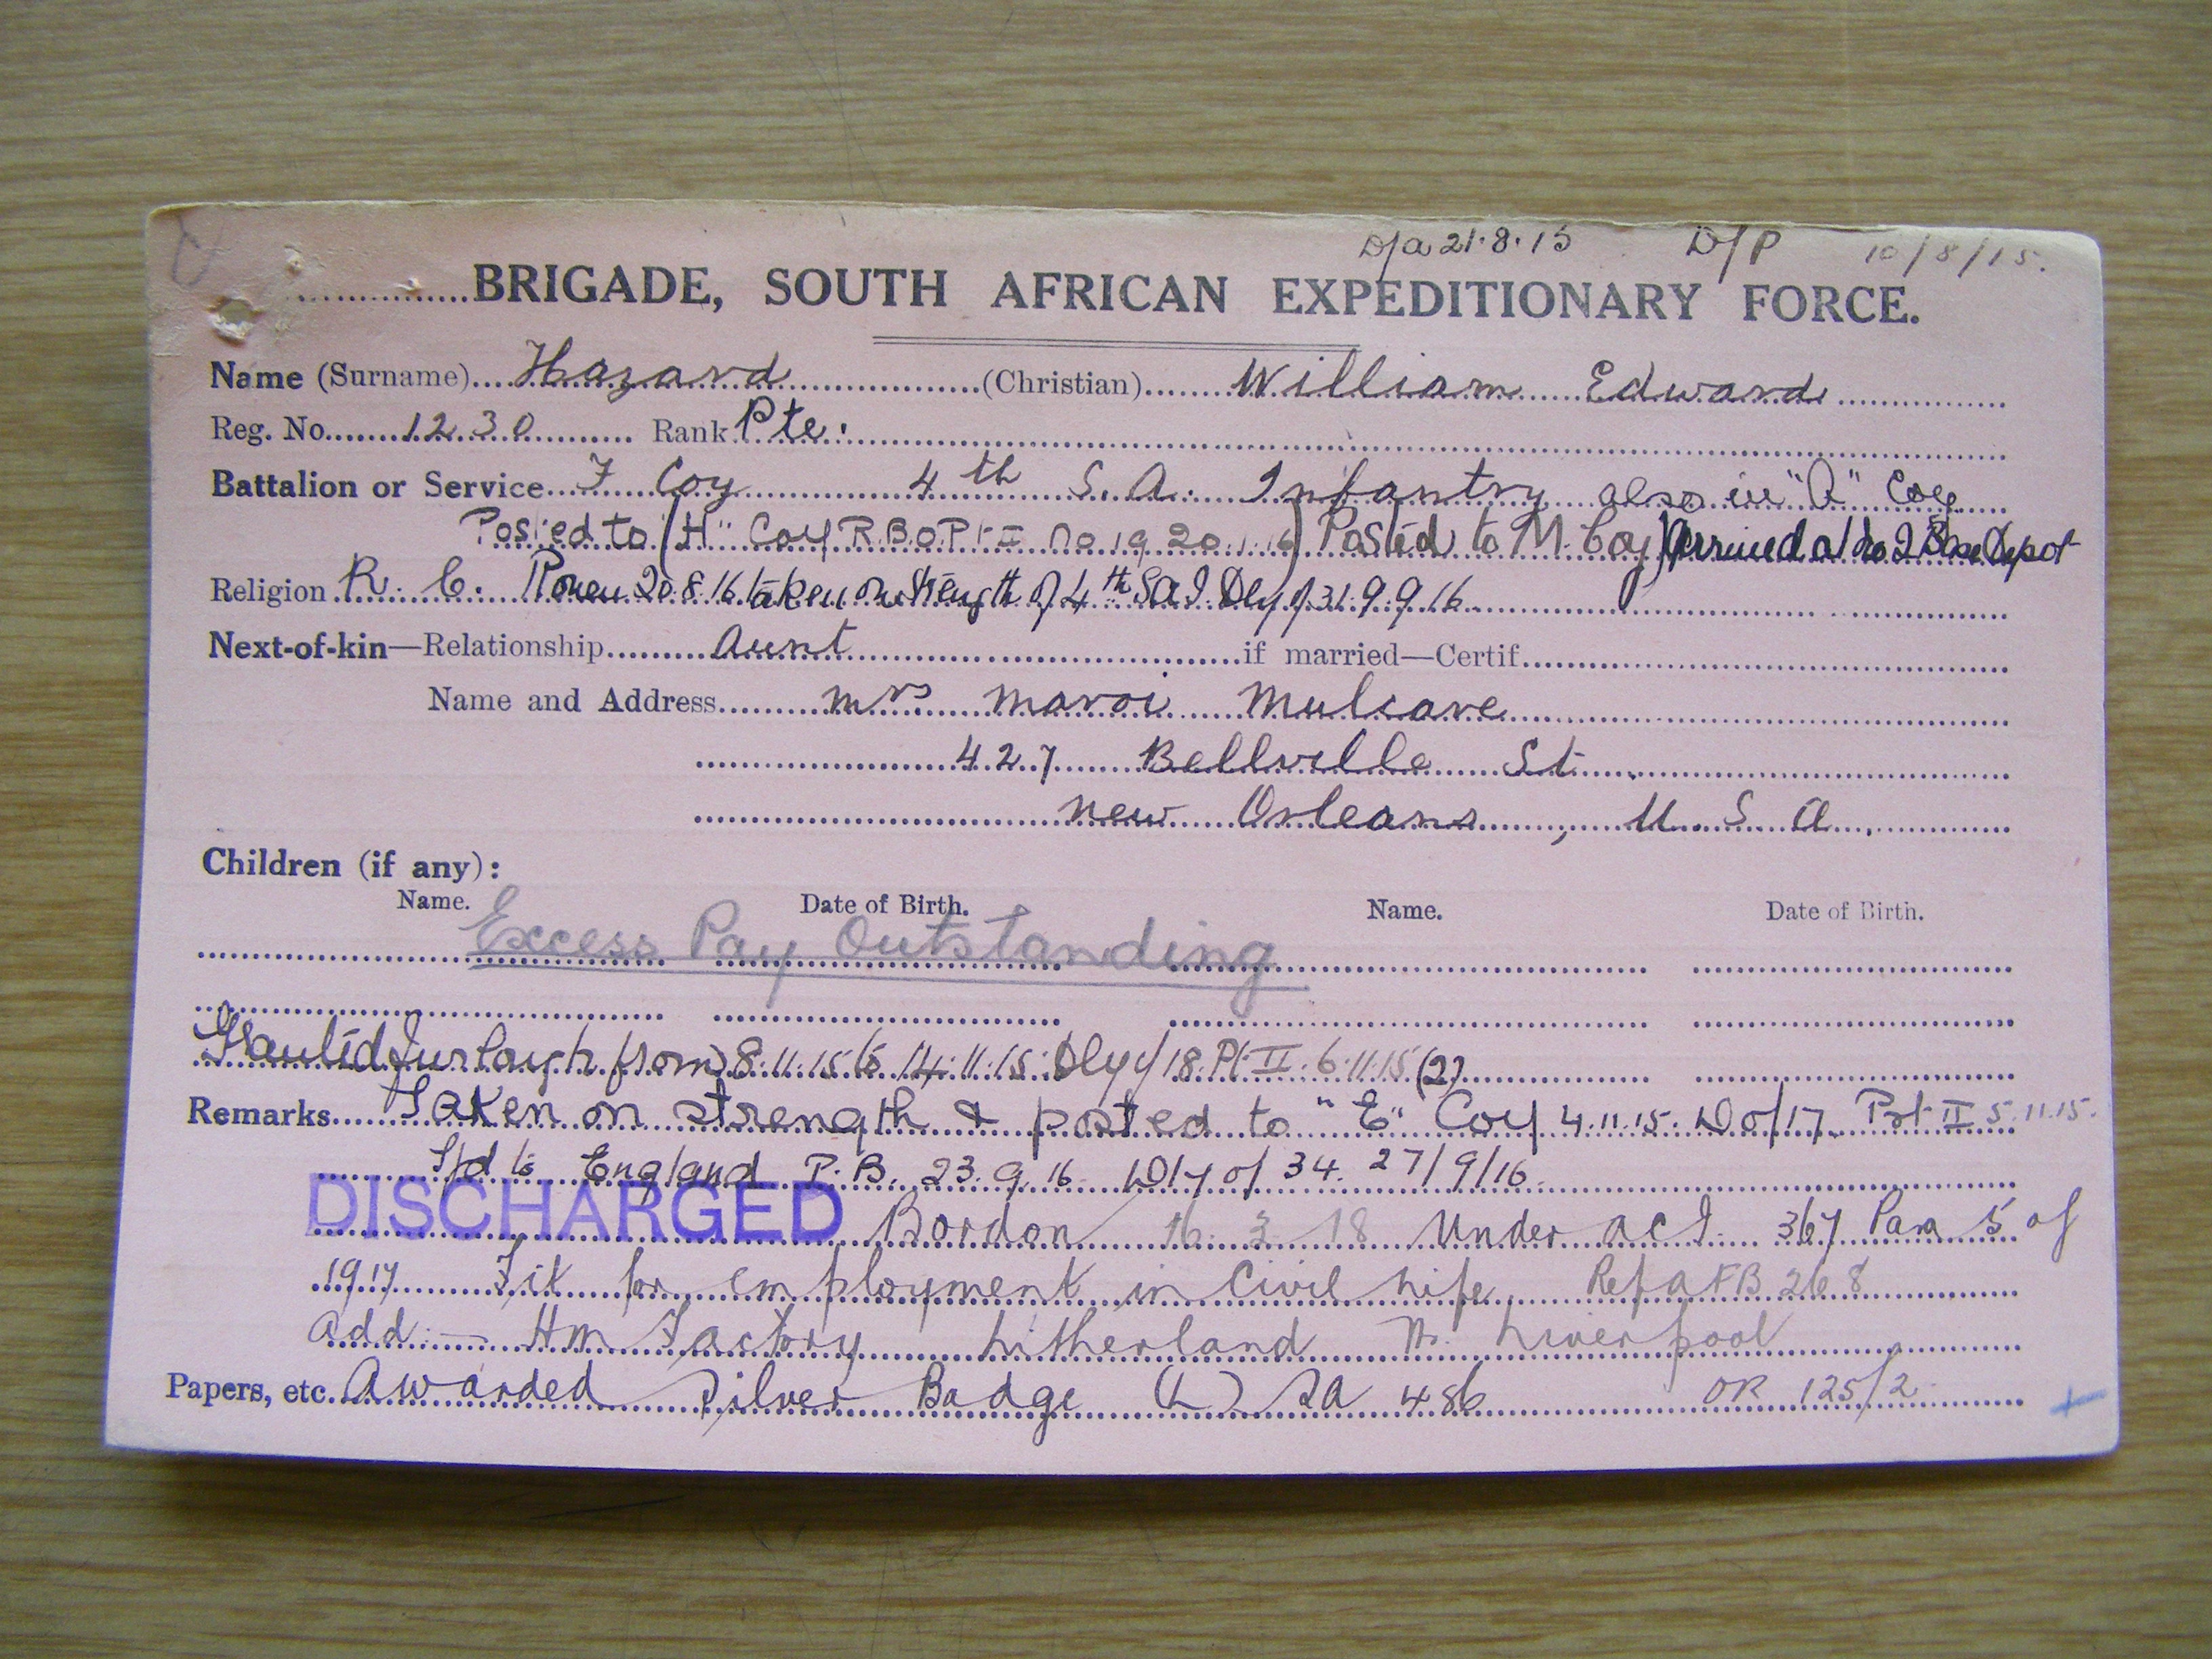 D/a 21.8.15 D/P 10/8/15.
BRIGADE, SOUTH AFRICAN EXPEDITIONARY FORCE.
Name (Surname) Hazard (Christian) William Edward
Reg. No. 1230 Rank Pte.
Battalion or Service F Coy 4th S.A. Infantry also in "A" Coy
Posted to "H" Coy R.B.O. Pt II No 19 20.1.16) Posted to M. Coy Arrived at No 2 Base Depot
Religion R. C. Rouen 20.8.16 taken on strength of 4th SAI Dly o/31.9.9.16
Next-of-kin—Relationship Aunt if married—Certif.
Name and Address Mrs Maroi Mulcare
427 Bellville St.
New Orleans, U.S.A.
Children (if any):
Name. Date of Birth. Name. Date of Birth.
Excess Pay Outstanding
Granted furlough from 8.11.15 to 14.11.15. Dly o/18. Pt II. 6.11.15 (2)
Remarks Taken on strength & posted to "E" Coy 4.11.15. D o/17. Prt II 5.11.15.
T/d to England P.B. 23.9.16 Dly o/ 34. 27/9/16
DISCHARGED Bordon 16 3 18 Under ACI. 367 Para 5 of
1917 Fit for employment in Civil Life Ref AFB 268
Add:— HM Factory Litherland Nr. Liverpool
Papers, etc. Awarded Silver Badge (L) SA 486 OR 125/2